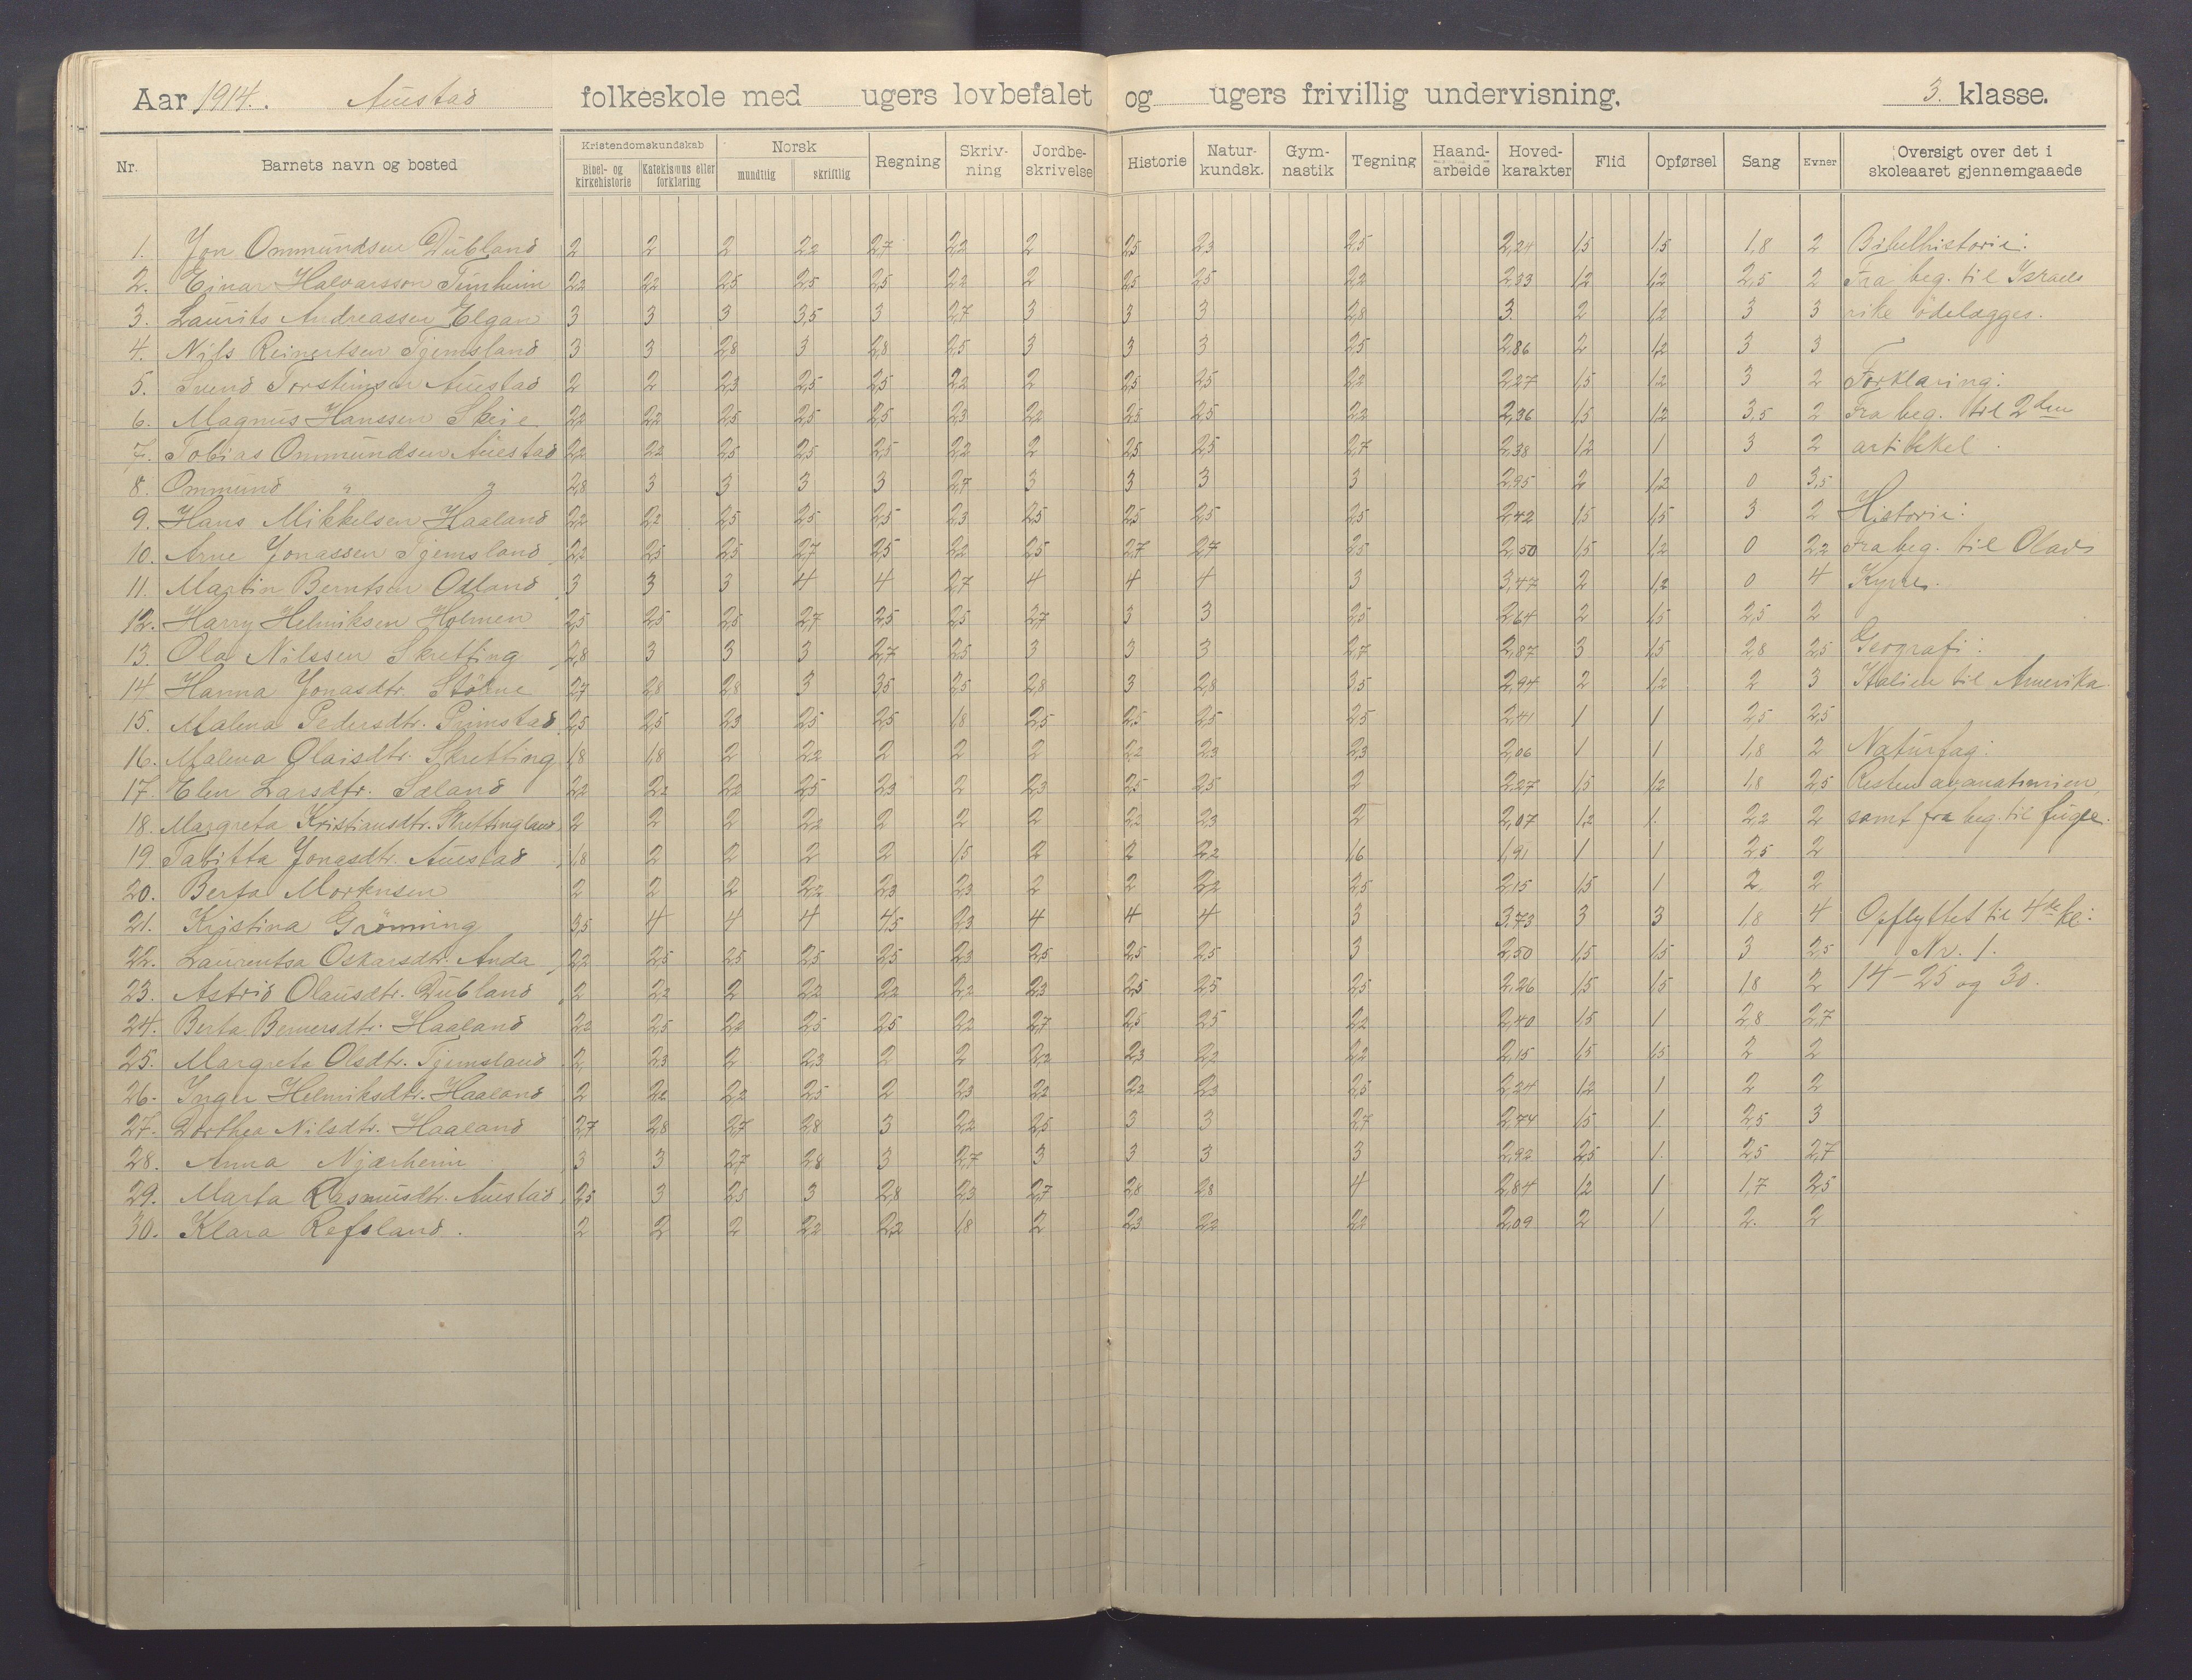 Aar 1914. Auestad folkeskole med ugers lovbefalet og ugers frivillig undervisning. 3. klasse.
Nr. Barnets navn og bosted Kristendomskundskab Bibel- og kirkehistorie Katekismus eller forklaring Norsk mundtlig skriftlig Regning Skriv-ning Jordbe-skrivelse Historie Natur-kundsk. Gym-nastik Tegning Haand-arbeide Hoved-karakter Flid Opførsel Sang Evner Oversigt over det i skoleaaret gjennemgaaede
1. Jon Ommundsen Dubland 2 2 2 2,2 2,7 2,2 2 2,5 2,3 2,5 2,24 1,5 1,5 1,8 2 Bibelhistorie:
2. Einar Halvarsson Tunheim 2,2 2,2 2,5 2,5 2,5 2,2 2 2,5 2,5 2,2 2,33 1,2 1,2 2,5 2 Fra beg. til Israels
3. Laurits Andreassen Elgan 3 3 3 3,5 3 2,7 3 3 3 2,8 3 2 1,2 3 3 rike ödelægges.
4. Nils Reinertsen Tjemsland 3 3 2,8 3 2,8 2,5 3 3 3 2,5 2,86 2 1,2 3 3
5. Svend Torsteinsen Auestad 2 2 2,3 2,5 2,5 2,2 2 2,5 2,5 2,2 2,27 1,5 1,2 3 2 Forklaring:
6. Magnus Hanssen Skeie 2,2 2,2 2,5 2,5 2,5 2,3 2,2 2,5 2,5 2,2 2,36 1,5 1,2 3,5 2 Fra beg. til 2den
7. Tobias Ommundsen Auestad 2,2 2,2 2,5 2,5 2,5 2,2 2 2,5 2,5 2,7 2,38 1,2 1 3 2 artikkel.
8. Ommund " " 2,8 3 3 3 3 2,7 3 3 3 3 2,95 2 1,2 0 3,5
9. Hans Mikkelsen Haaland 2,2 2,2 2,5 2,5 2,5 2,3 2,5 2,5 2,5 2,5 2,42 1,5 1,5 3 2 Historie:
10. Arne Jonassen Tjemsland 2,2 2,5 2,5 2,7 2,5 2,2 2,5 2,7 2,7 2,5 2,50 1,5 1,2 0 2,2 Fra beg. til Olav
11. Martin Berntsen Osland 3 3 3 4 4 2,7 4 4 4 3 3,47 2 1,2 0 4 Kyrre.
12. Harry Helmiksen Holmen 2,5 2,5 2,5 2,7 2,5 2,5 2,7 3 3 2,5 2,64 2 1,5 2,5 2
13. Ola Nilssen Skretting 2,8 3 3 3 2,7 2,5 3 3 3 2,7 2,87 3 1,5 2,8 2,5 Geografi:
14. Hanna Jonasdtr. Stökne 2,7 2,8 2,8 3 3,5 2,5 2,8 3 2,8 3,5 2,94 2 1,2 2 3 Italien til Amerika.
15. Malena Pedersdtr. Primstad 2,5 2,5 2,3 2,5 2,5 1,8 2,5 2,5 2,5 2,5 2,41 1 1 2,5 2,5
16. Malena Olaisdtr. Skretting 1,8 1,8 2 2,2 2 2 2 2,2 2,3 2,3 2,06 1 1 1,8 2 Naturfag:
17. Elen Larsdtr. Sæland 2,2 2,2 2,2 2,5 2,3 2 2,3 2,5 2,5 2 2,27 1,5 1,2 1,8 2,5 Resten av anatomien,
18. Margreta Kristiansdtr. Skrettingland 2 2 2 2,2 2 2 2 2,2 2,3 2 2,07 1,2 1. 2,2 2 samt fra beg. til fugle.
19 Tabitta Jonasdtr. Auestad 1,8 2 2 2 2 1,5 2 2 2,2 1,6 1,91 1 1 2,5 2
20. Berta Mortensen 2 2 2 2,2 2,3 2,3 2 2 2,2 2,5 2,15 1,5 1 2 2
21. Kristina Grönning 3,5 4 4 4 4,5 2,3 4 4 4 3 3,73 3 3 1,8 4 Opflyttet til 4de kl:
22. Laurentsa Oskarsdtr. Anda 2,2 2,5 2,5 2,5 2,5 2,3 2,5 2,5 2,5 3 2,50 1,5 1,5 3 2,5 Nr. 1.
23. Astrid Olausdtr. Dubland 2 2,2 2 2,2 2,2 2,2 2,3 2,5 2,5 2,5 2,26 1,5 1,5 1,8 2 14 - 25 og 30.
24. Berta Bernersdtr. Haaland 2,2 2,5 2,2 2,5 2,5 2,2 2,7 2,5 2,5 2,2 2,40 1,5 1 2,8 2,7
25. Margreta Olsdtr. Tjemsland 2 2,3 2 2,3 2 2 2,2 2,3 2,2 2,2 2,15 1,5 1,5 2 2
26. Inger Helmiksdtr. Haaland 2 2,2 2,2 2,5 2 2,3 2,2 2,2 2,3 2,5 2,24 1,2 1 2 2
27. Dorthea Nilsdtr. Haaland 2,7 2,8 2,7 2,8 3 2,2 2,5 3 3 2,7 2,74 1,5 1. 2,5 3
28. Anna Njærheim 3 3 2,7 2,8 3 2,7 3 3 3 3 2,92 2,5 1. 2,5 2,7
29. Marta Rasmusdtr. Auestad 2,5 3 2,5 3 2,8 2,3 2,7 2,8 2,8 4 2,84 1,2 1 1,7 2,5
30. Klara Refsland. 2 2 2 2,2 2,2 1,8 2 2,3 2,2 2,2 2,09 2 1 2. 2